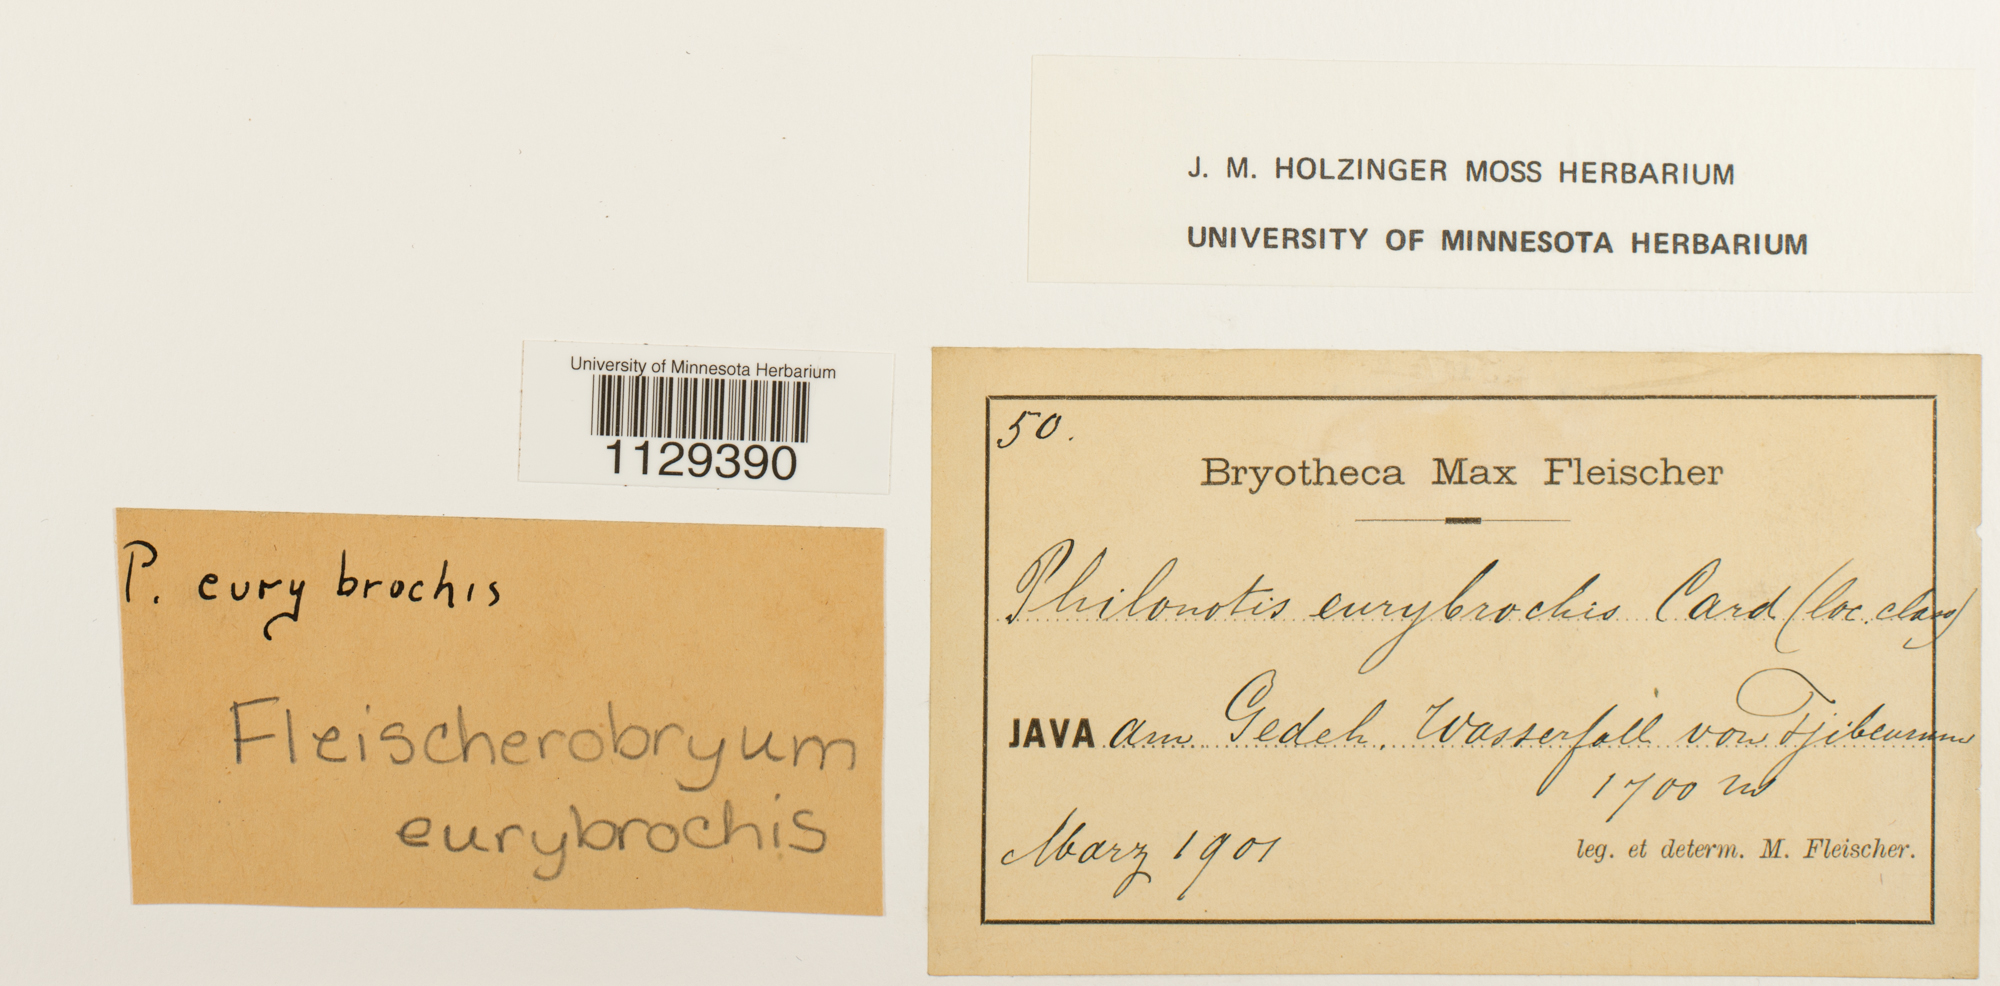 J. M. HOLZINGER MOSS HERBARIUM
UNIVERSITY OF MINNESOTA HERBARIUM
University of Minnesota Herbarium
1129390
P. eurybrochis
Fleischerobryum
eurybrochis
50.
Bryotheca Max Fleischer
Philonotis eurybrochis Card (loc. class)
JAVA am Gedeh. Wasserfall von Tjibeurrum
1700 m
Marz 1901
leg. et determ. M. Fleischer.